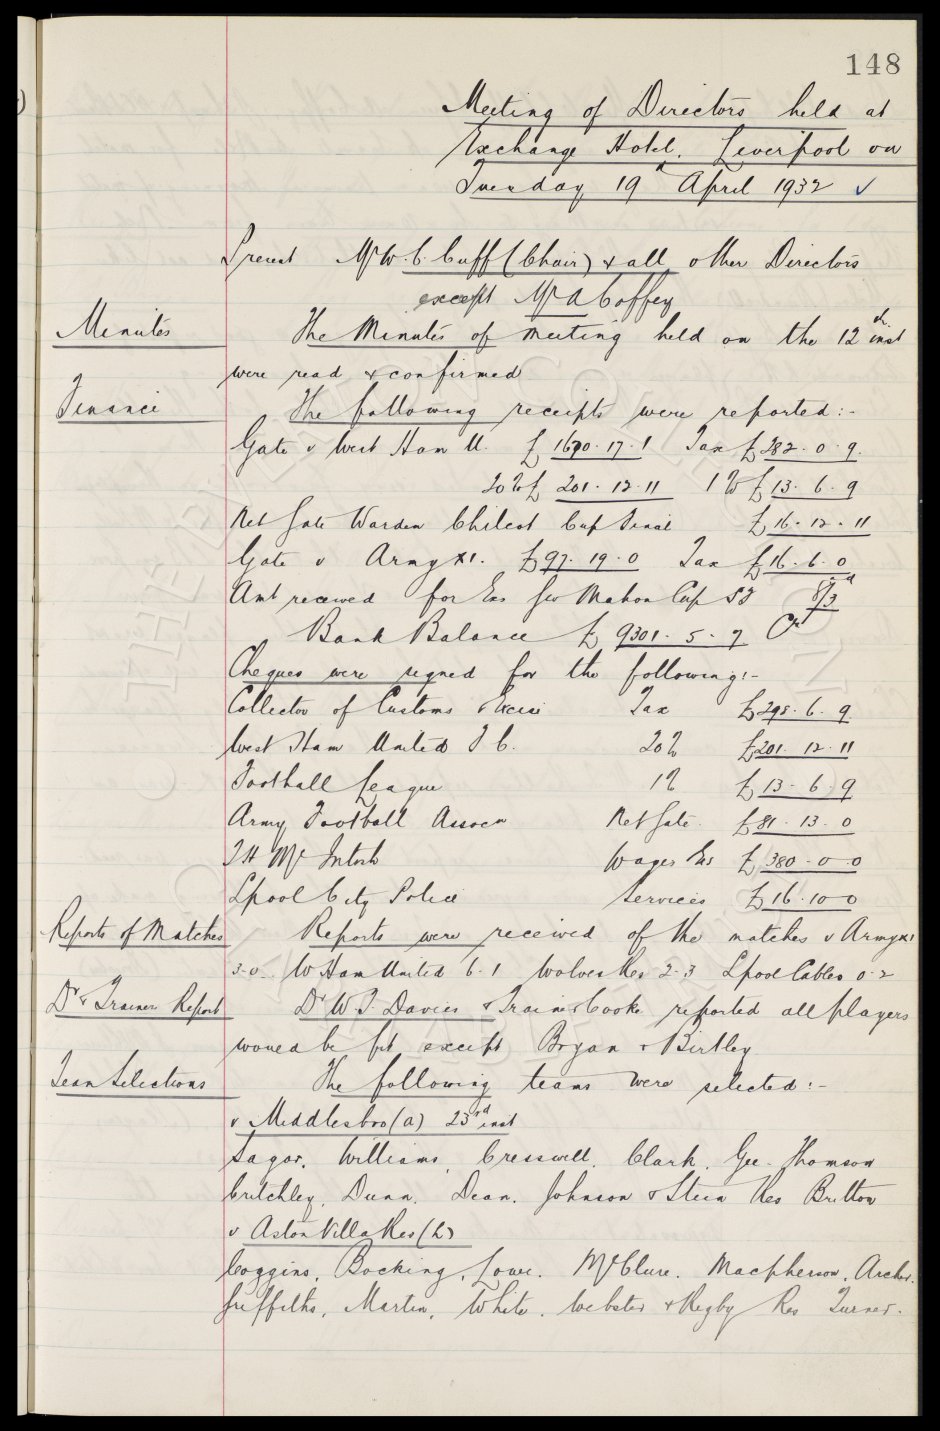 148
Meeting of Directors held at
Exchange Hotel, Liverpool on
Tuesday 19th April 1932 ✓
Present Mr W.C. Cuff (Chair) & all other Directors
except Mr A Coffey
Minutes
The Minutes of meeting held on the 12th inst
were read & confirmed
Finance
The following receipts were reported:-
Gate v West Ham U. £1690.17.1 Tax £282.0.9.
20% £201.12.11 1% £13.6.9
Net Gate Warden Chilcot Cup Final £16.12.11
Gate v Army XI. £97.19.0 Tax £16.6.0
Amt received for Exs Mahon Cup 8/3d
Bank Balance £9301.5.7 Cr
Cheques were signed for the following:-
Collector of Customs & Excise Tax £298.6.9
West Ham United F C. 20% £201.12.11
Football League 1% £13.6.9
Army Football Assocn Net Gate £81.13.0
T H McIntosh Wages Exs £380.0.0
Lpool City Police Services £16.10.0
Reports of Matches
Reports were received of the matches v Army XI
3-0. W Ham United 6.1 Wolves Res 2-3 Lpool Cables 0.2
Dr & Trainer Report
Dr W.J. Davies & Trainer Cooke reported all players
would be fit except Bryan & Birtley
Team Selections
The following teams were selected:-
v Middlesbro (a) 23rd inst
Sagar. Williams, Cresswell, Clark. Gee. Thomson
Critchley, Dunn. Dean. Johnson & Stein Res Britton
v Aston Villa Res (h)
Coggins, Bocking, Lowe. McClure. Macpherson, Archer.
Griffiths, Martin, White, Webster & Rigby Res Turner.